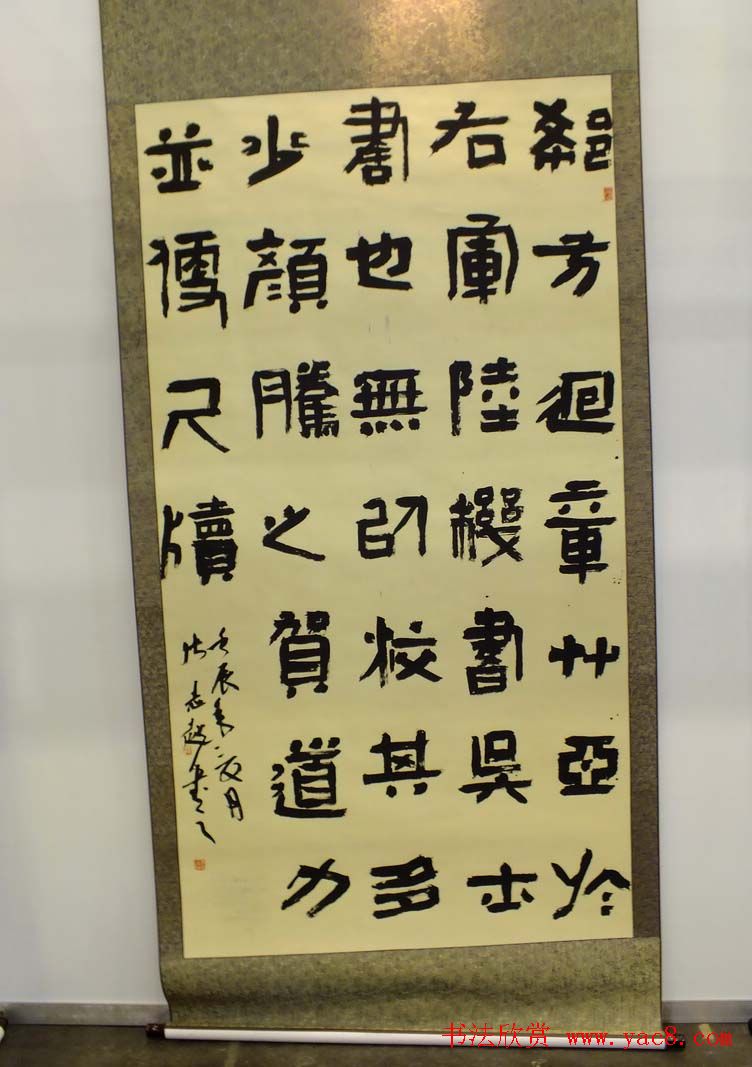 郗方迴章艸亞於
右軍陸機書吳士
書也無以校其多
少顏騰之賀道力
並便尺牘
壬辰年 月
志 書之
书法欣赏 www.yac8.com